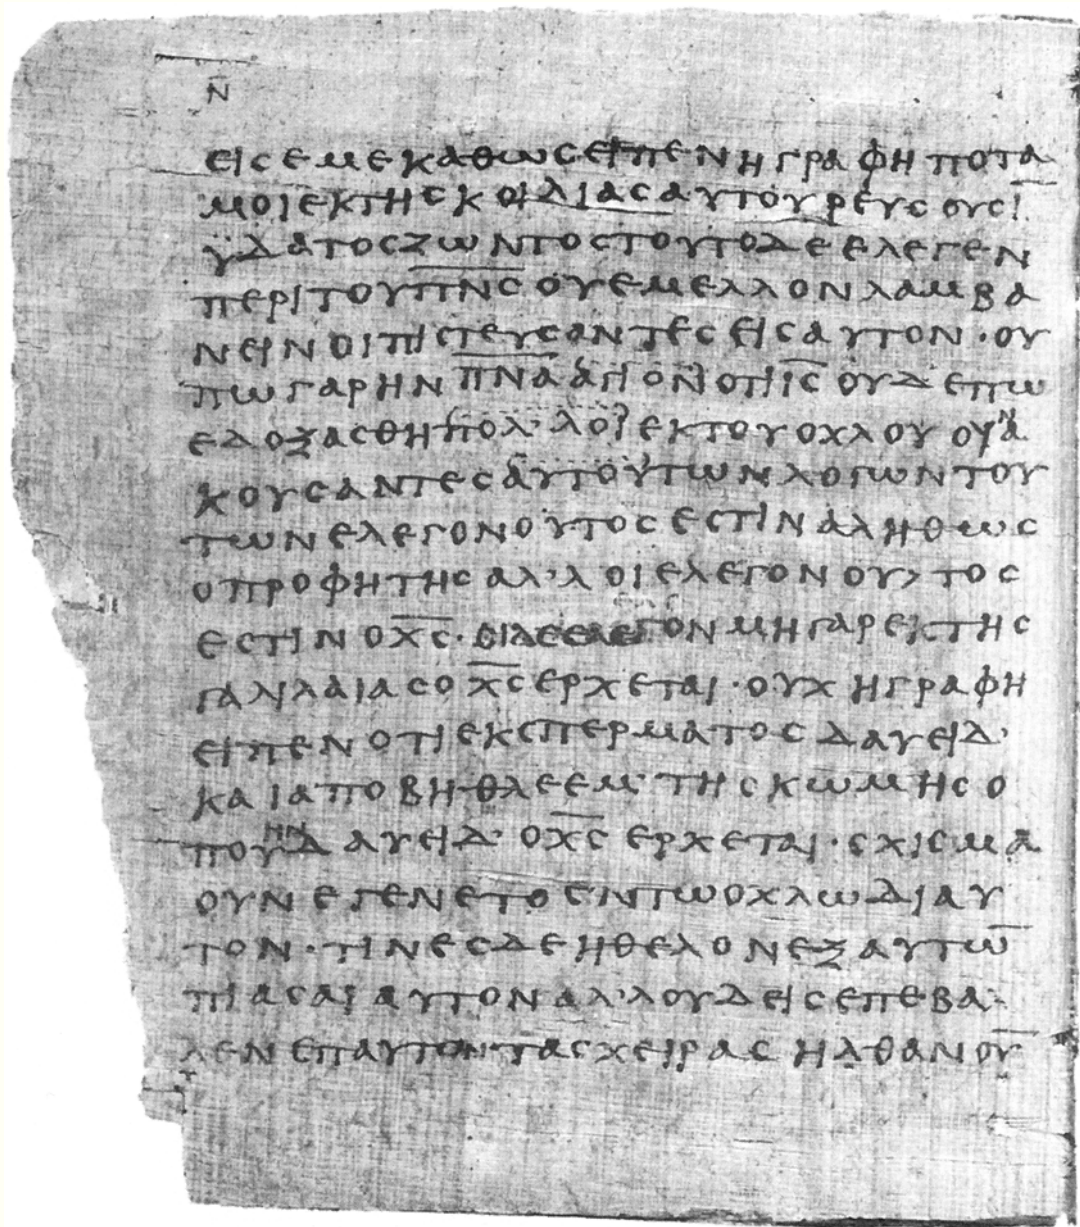 Ν̅
ΕΙϹΕΜΕΚΑΘΩϹΕΙΠΕΝΗΓΡΑΦΗΠΟΤΑ
ΜΟΙΕΚΤΗϹΚΟΙΛΙΑϹΑΥΤΟΥΡΕΥϹΟΥϹΙ̅
ΫΔΑΤΟϹΖΩΝΤΟϹΤΟΥΤΟΔΕΕΛΕΓΕΝ
ΠΕΡΙΤΟΥΠ̅Ν̅Ϲ̅ΟΥΕΜΕΛΛΟΝΛΑΜΒΑ
ΝΕΙΝΟΙΠΙϹΤΕΥϹΑΝΤΕϹΕΙϹΑΥΤΟΝ·ΟΥ
ΠΩΓΑΡΗΝΠ̅Ν̅Α̅ΑΓΙΟΝΟΤΙΙ̅Ϲ̅ΟΥΔΕΠΩ
ΕΔΟΞΑϹΘΗΠΟΛ·ΛΟΙΕΚΤΟΥΟΧΛΟΥΟΥΝΑ
ΚΟΥϹΑΝΤΕϹΑΥΤΟΥΤΩΝΛΟΓΩΝΤΟΥ
ΤΩΝΕΛΕΓΟΝΟΥΤΟϹΕϹΤΙΝΑΛΗΘΩϹ
ΟΠΡΟΦΗΤΗϹΑΛ·ΛΟΙΕΛΕΓΟΝΟΥ>ΤΟϹ
ΕϹΤΙΝΟΧ̅Ϲ̅·ΟΙΔΕΕΛΕΓΟΝΜΗΓΑΡΕΚΤΗϹ
ΓΑΛΙΛΑΙΑϹΟΧ̅Ϲ̅ΕΡΧΕΤΑΙ·ΟΥΧΗΓΡΑΦΗ
ΕΙΠΕΝΟΤΙΕΚϹΠΕΡΜΑΤΟϹΔΑΥΕΙΔ·
ΚΑΙΑΠΟΒΗΘΛΕΕΜ·ΤΗϹΚΩΜΗϹΟ
ΠΟΥΗΝΔΑΥΕΙΔ·ΟΧ̅Ϲ̅ΕΡΧΕΤΑΙ·ϹΧΙϹΜΑ
ΟΥΝΕΓΕΝΕΤΟΕΝΤΩΟΧΛΩΔΙΑΥ
ΤΟΝ·ΤΙΝΕϹΔΕΗΘΕΛΟΝΕΞΑΥΤΩ̅
ΠΙΑϹΑΙΑΥΤΟΝΑΛ·ΛΟΥΔΕΙϹΕΠΕΒΑ
ΛΕΝΕΠΑΥΤΟΝ·ΤΑϹΧΕΙΡΑϹΗΛΘΑΝΟΥ̅